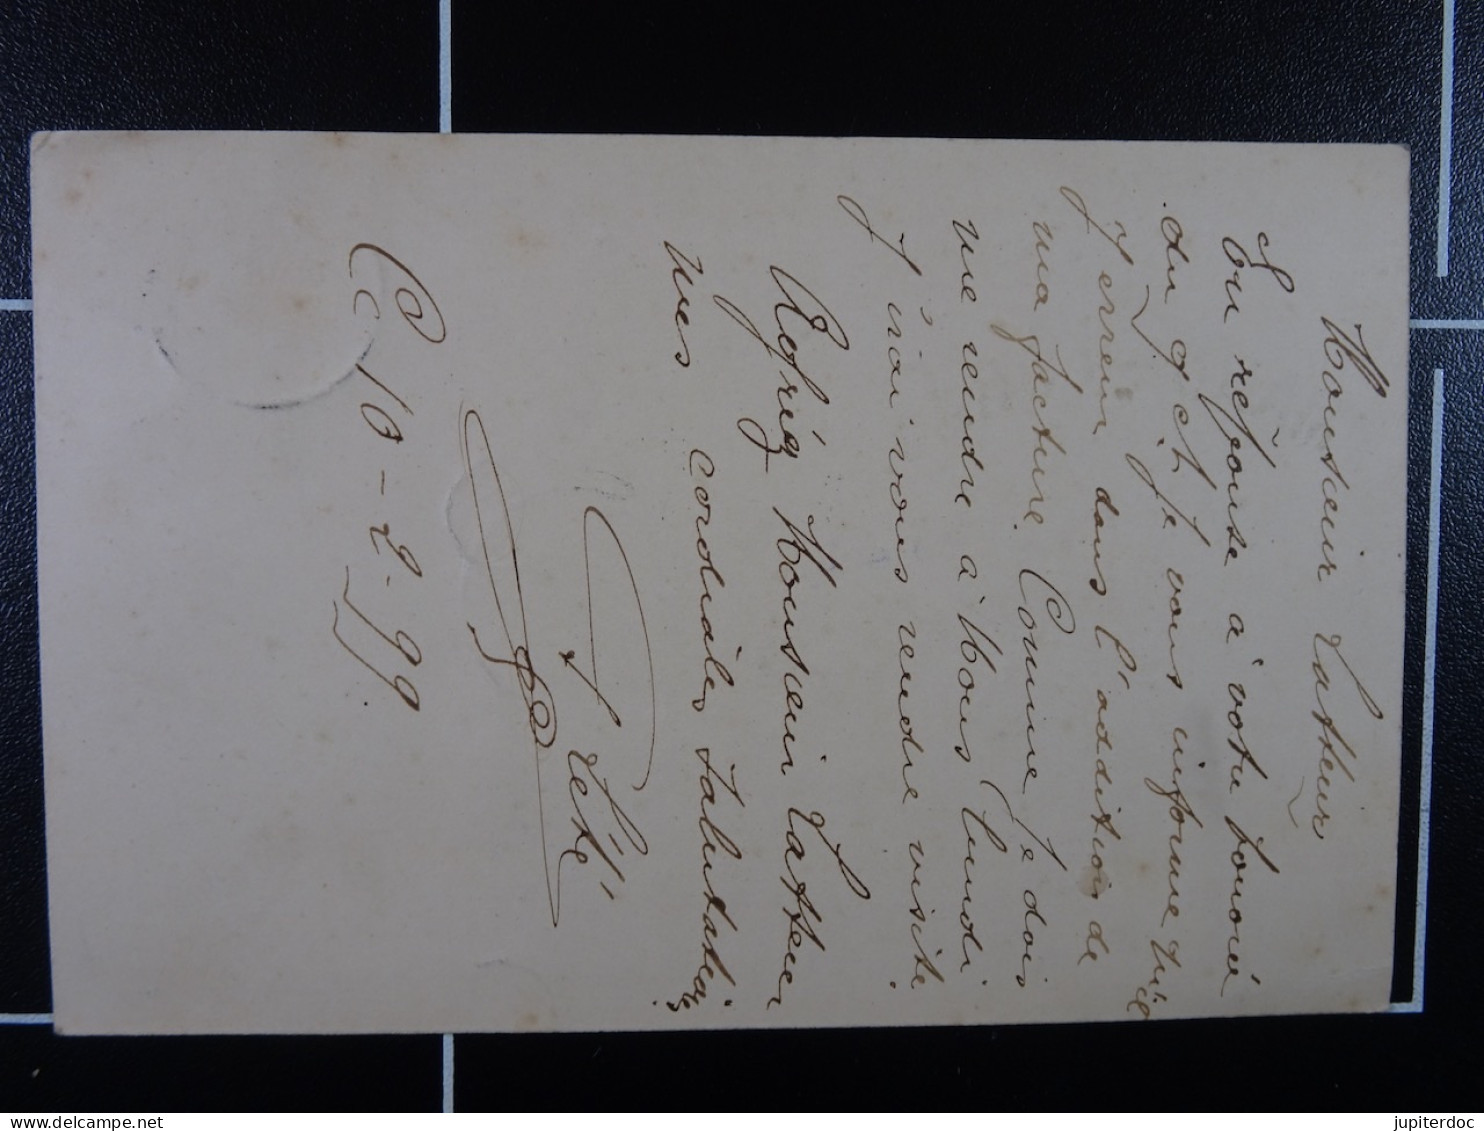 Monsieur Latteur
En reponse à votre honoré
du 9 ct je vous informe qu'il
J erreur dans l'addition de
ma facture Comme je dois
me rendre à Mons lundi
J'irai vous rendre visite
Agréez Monsieur Latteur
mes cordiales salutations
Lété
10-2-99
jupiterdoc